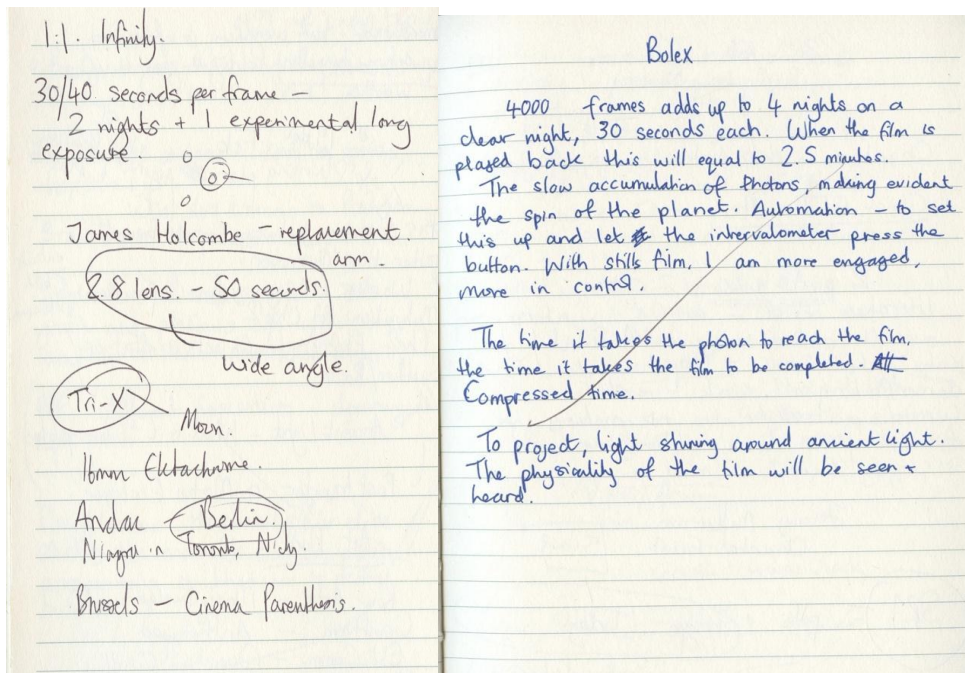 1:1. Infinity.
30/40 seconds per frame –
2 nights + 1 experimental long
exposure.
James Holcombe – replacement
arm.
2.8 lens. – 50 seconds.
Wide angle.
Tri-X
Moon.
16mm Ektachrome.
Andec – Berlin.
Niagra in Toronto,
Brussels – Cinema Parenthesis.
Bolex
4000 frames adds up to 4 nights on a
clear night, 30 seconds each. When the film is
played back this will equal to 2.5 minutes.
The slow accumulation of Photons, making evident
the spin of the planet. Automation – to set
this up and let the intervalometer press the
button. With stills film, I am more engaged,
more in control.
The time it takes the photon to reach the film,
the time it takes the film to be completed.
Compressed time.
To project, light shining around ancient light.
The physicality of the film will be seen +
heard.